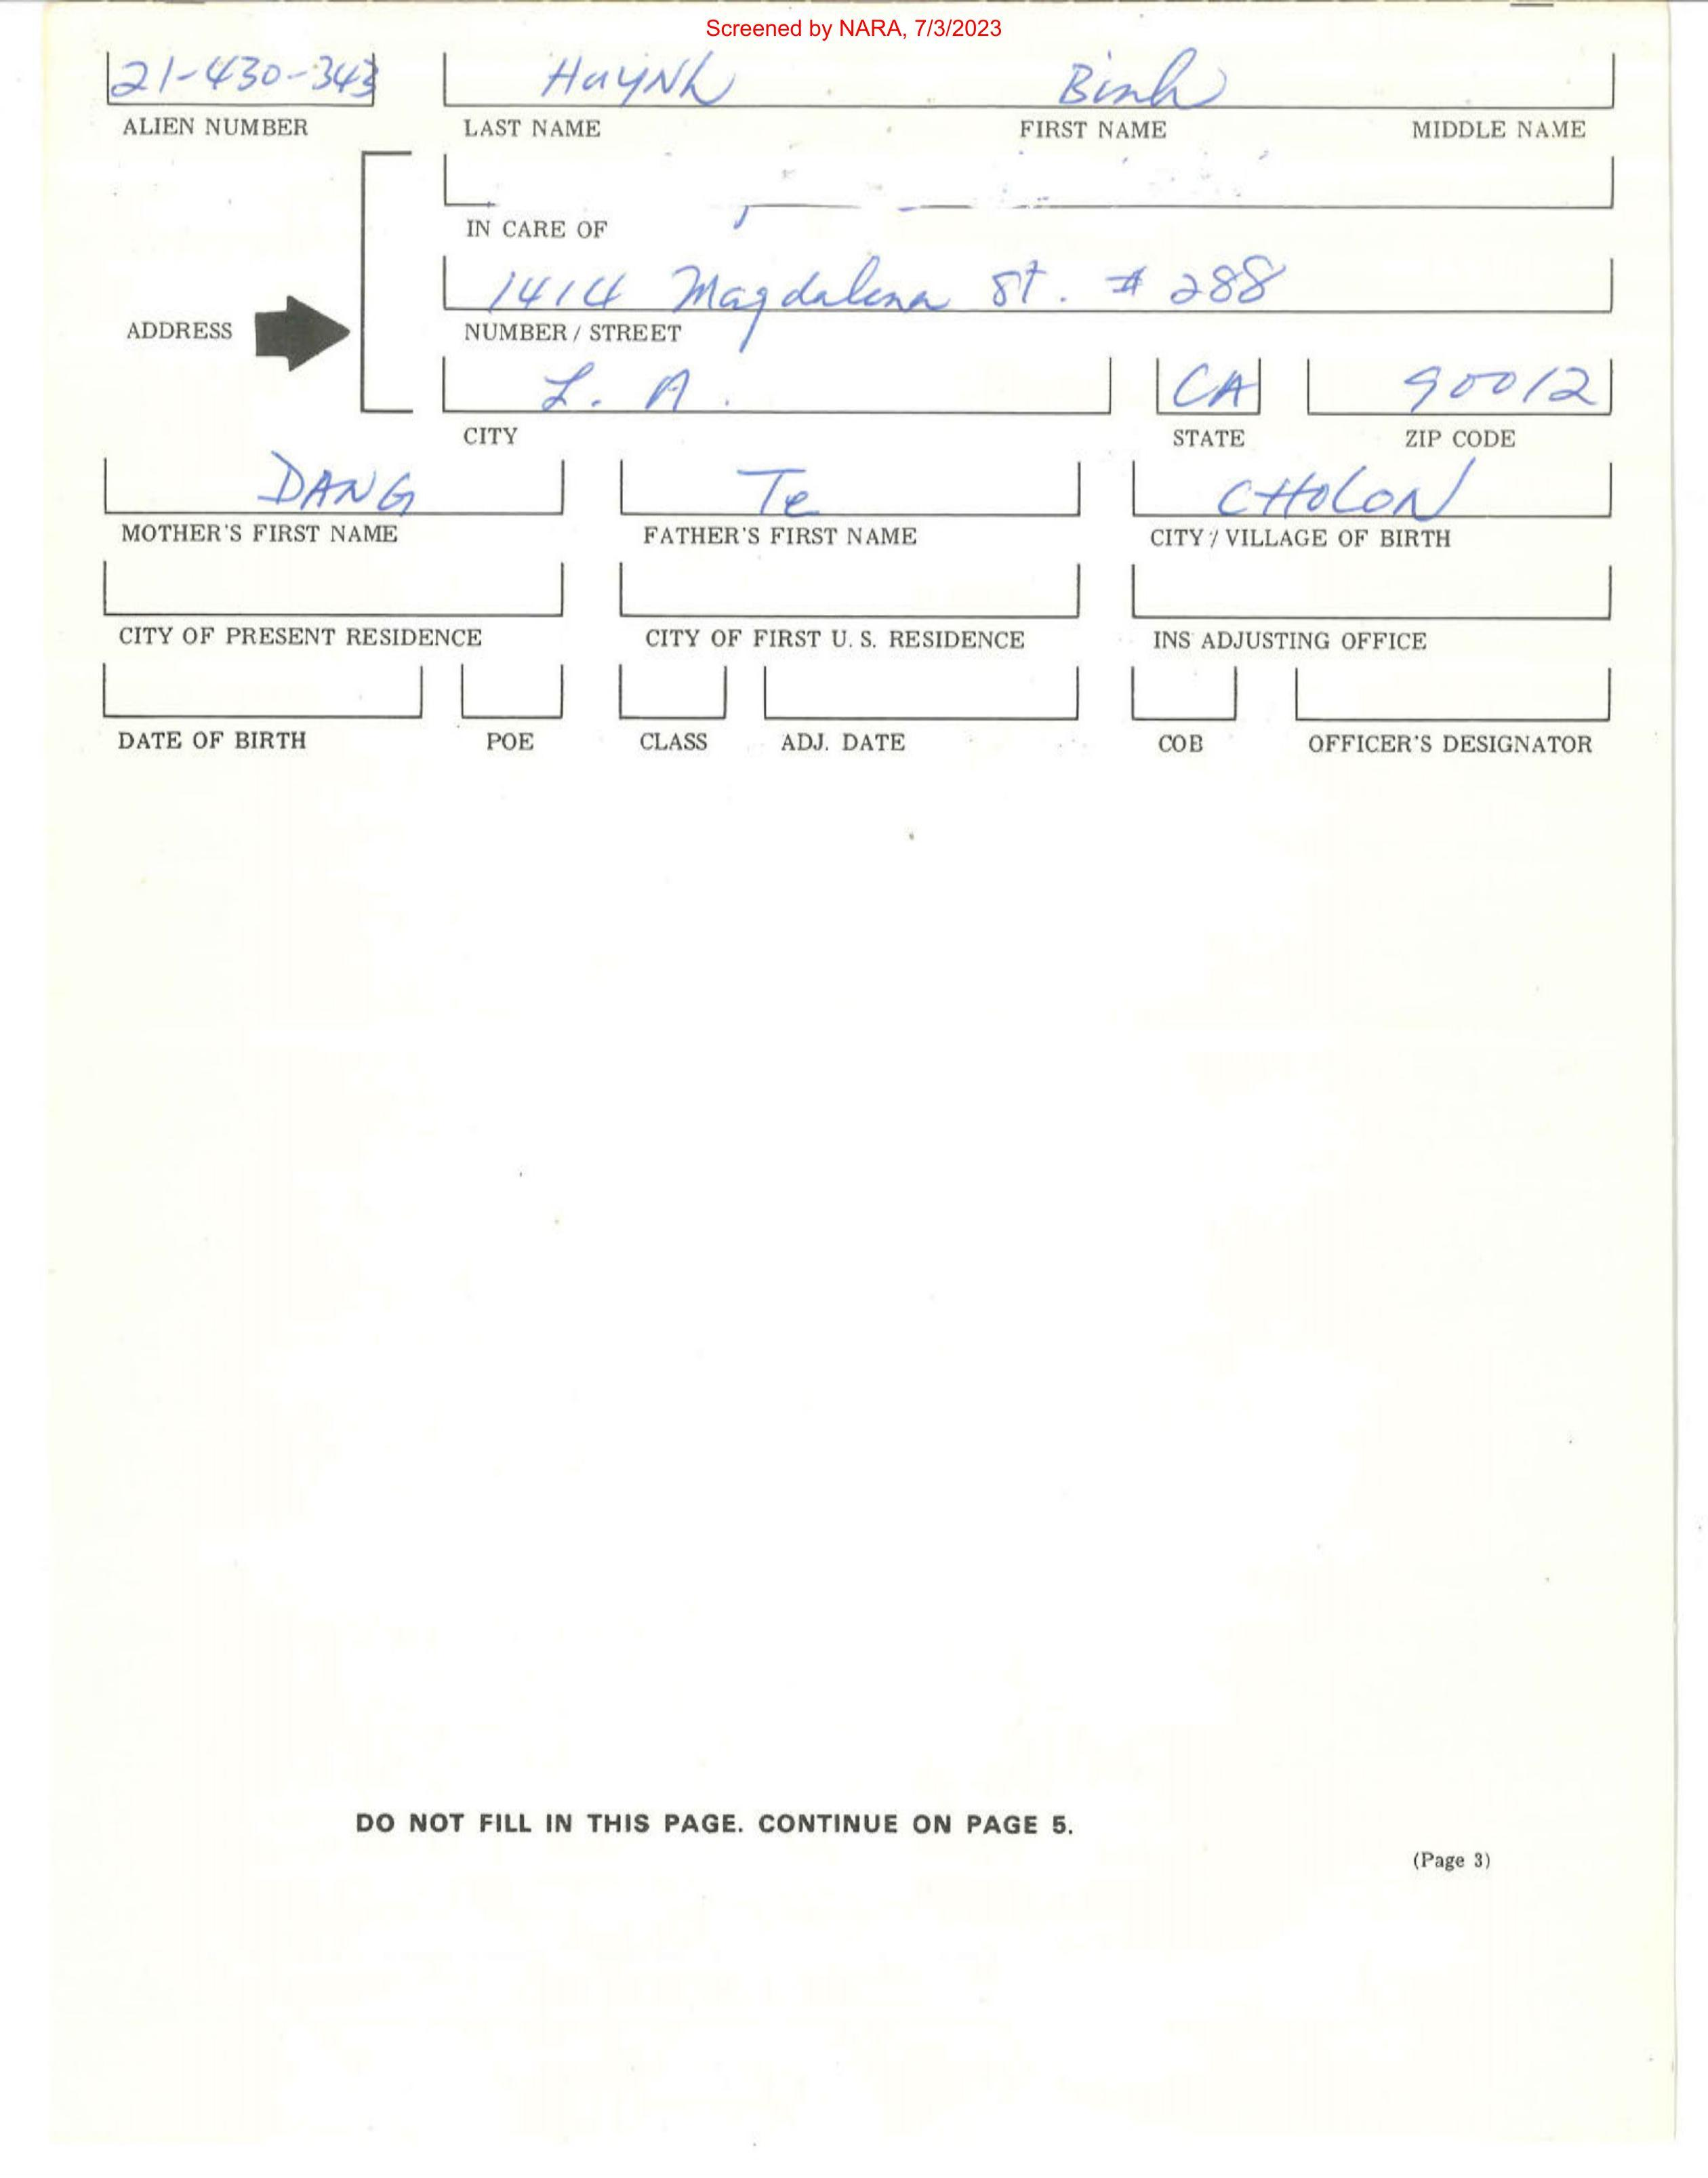 Screened by NARA, 7/3/2023
21-430-343 Huynh Binh
ALIEN NUMBER LAST NAME FIRST NAME MIDDLE NAME
IN CARE OF
1414 Magdalena St. # 288
ADDRESS NUMBER / STREET
L. A. CA 90012
CITY STATE ZIP CODE
DANG Te CHOLON
MOTHER'S FIRST NAME FATHER'S FIRST NAME CITY / VILLAGE OF BIRTH
CITY OF PRESENT RESIDENCE CITY OF FIRST U. S. RESIDENCE INS ADJUSTING OFFICE
DATE OF BIRTH POE CLASS ADJ. DATE COB OFFICER'S DESIGNATOR
DO NOT FILL IN THIS PAGE. CONTINUE ON PAGE 5.
(Page 3)